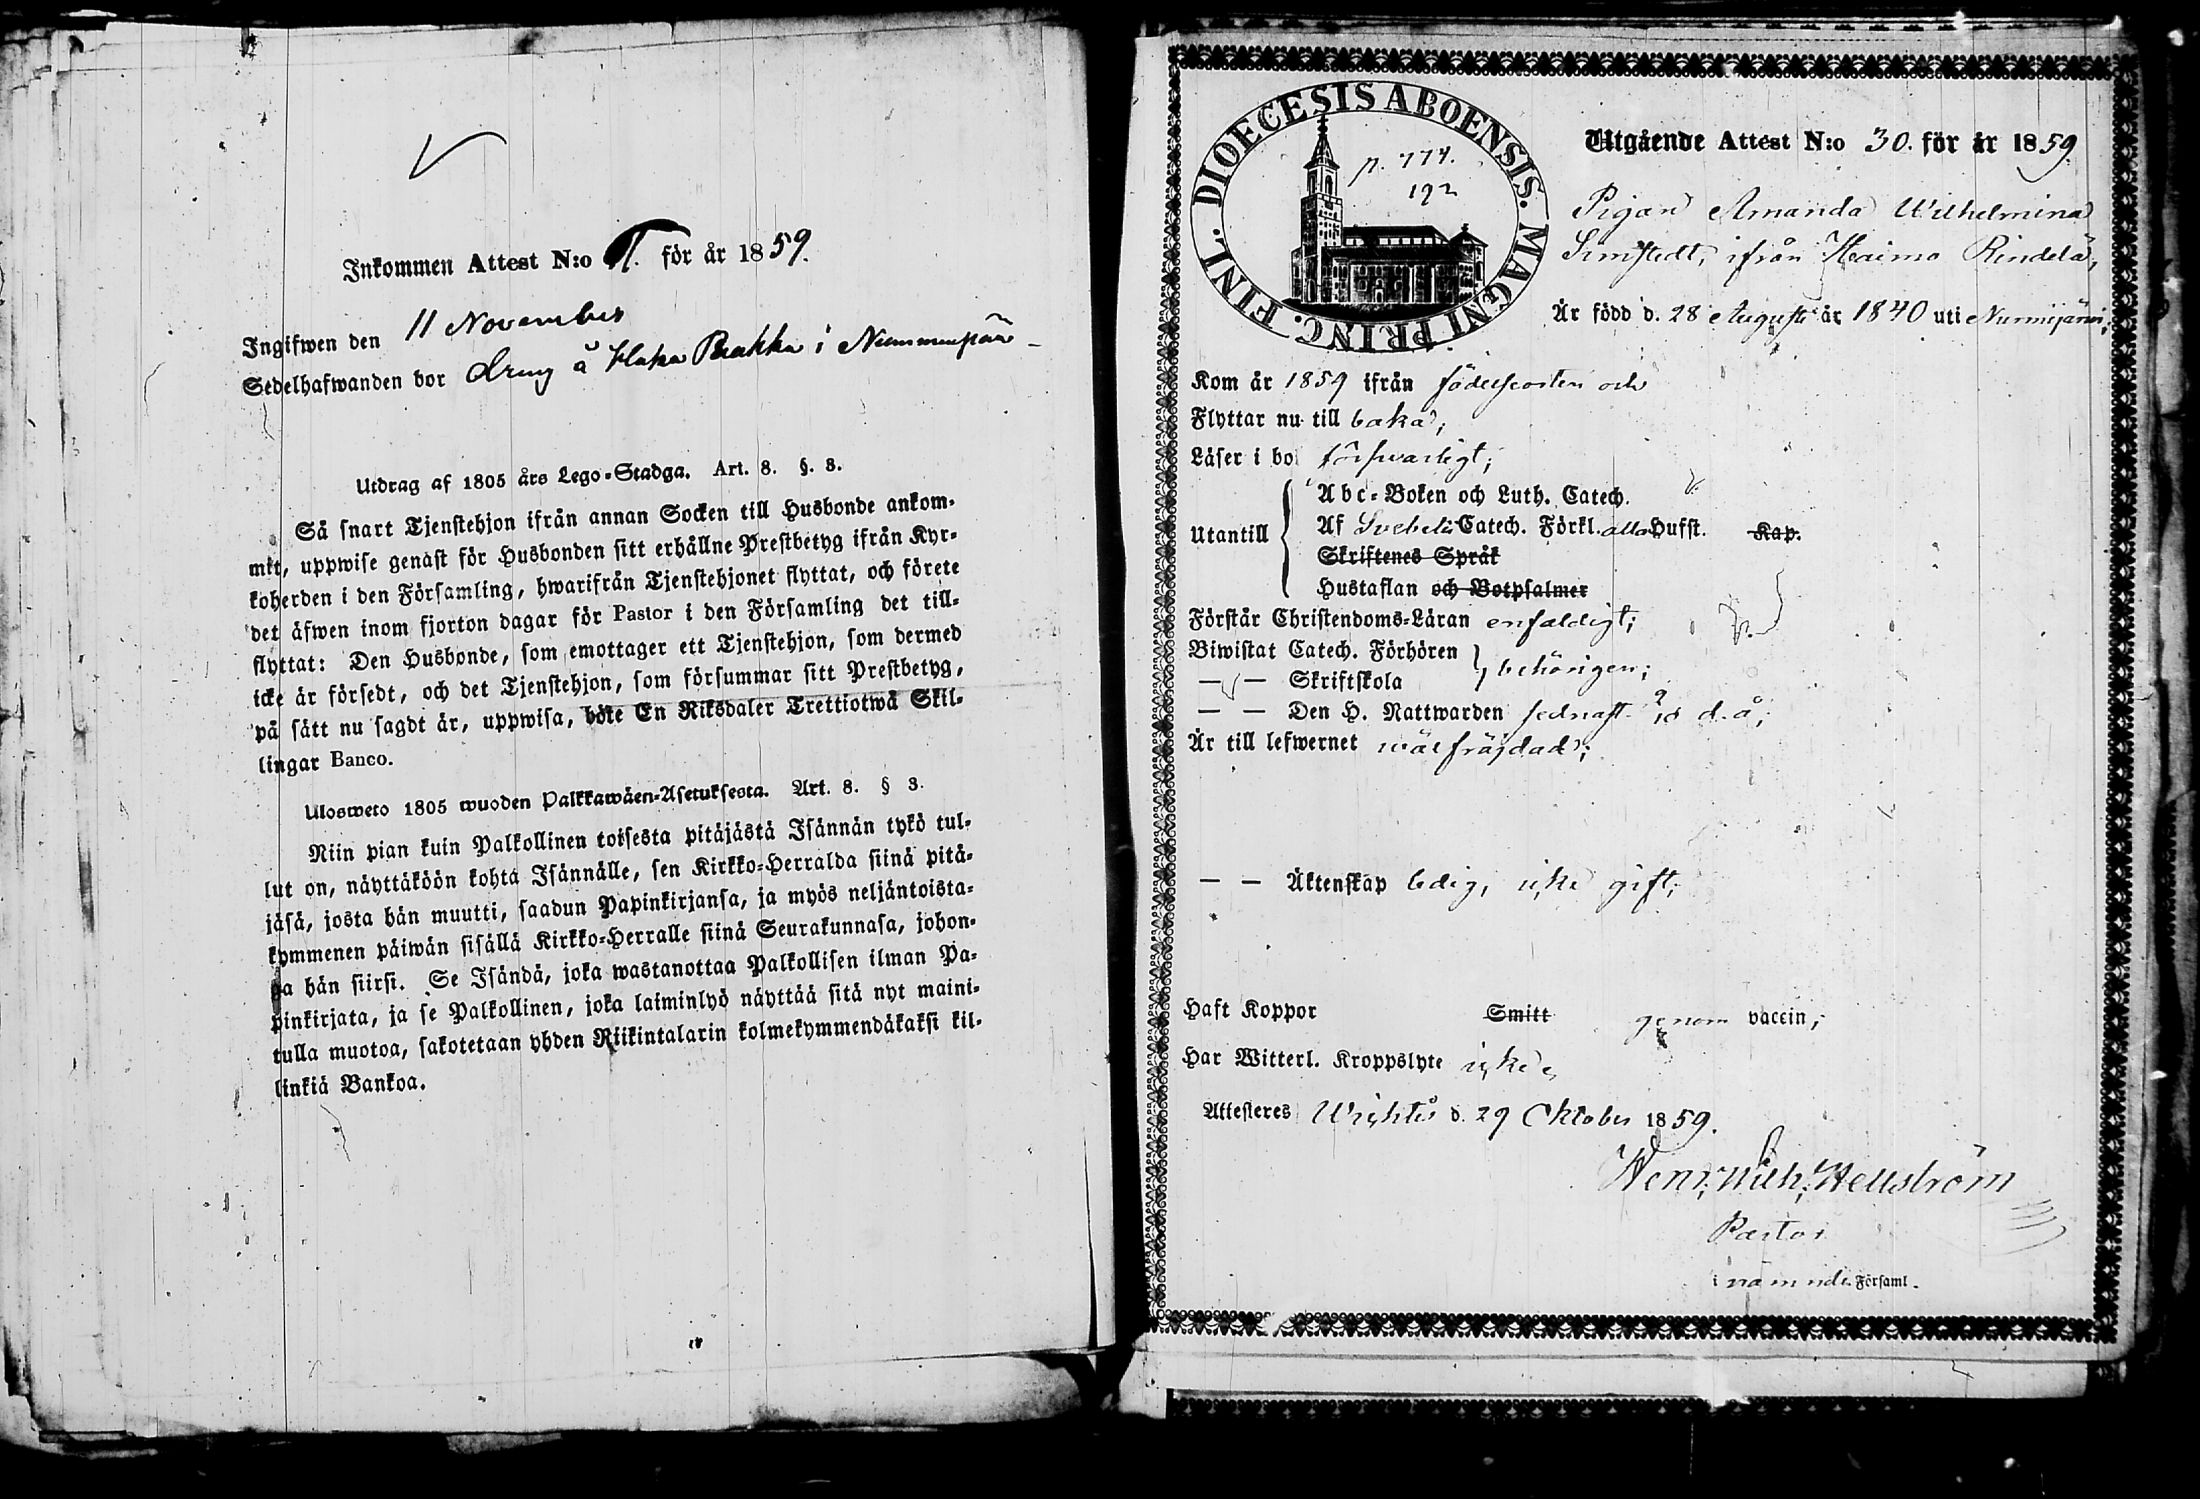 Inkommen Attest N:o för år 1859.
Ingifwen den 11 November
Sedelhafwanden bor å i Nummenpää
Utdrag af 1805 års Lego-Stadga. Art. 8. §. 3.
Så snart Tjenstehjon ifrån annan Socken till Husbonde ankom-
mit, uppwise genast för Husbonden sitt erhållne Prestbetyg ifrån Kyr-
koherden i den Församling, hwarifrån Tjenstehjonet flyttat, och förete
det äfwen inom fjorton dagar för Pastor i den Församling det till-
flyttat: Den Husbonde, som emottager ett Tjenstehjon, som dermed
icke är försedt, och det Tjenstehjon, som försummar sitt Prestbetyg,
på sätt nu sagdt är, uppwisa, böte En Riksdaler Trettiotwå Skil-
lingar Banco.
Ulosweto 1805 wuoden Palkkawäen-Asetuksesta. Art. 8. § 3.
Niin pian kuin Palkollinen toisesta pitäjästä Isännän tykö tul-
lut on, näyttäköön kohta Isännälle, sen Kirkko-Herralda siinä pitä-
jäsä, josta hän muutti, saadun Papinkirjansa, ja myös neljäntoista-
kymmenen päiwän sisällä Kirkko-Herralle siinä Seurakunnasa, johon-
ga hän siirsi. Se Isändä, joka wastanottaa Palkollisen ilman Pa-
pinkirjata, ja se Palkollinen, joka laiminlyö näyttää sitä nyt maini-
tulla muotoa, sakotetaan yhden Riikintalarin kolmekymmendäkaksi kil-
linkiä Bankoa.
DIOECESIS ABOENSIS. MAGNI PRINC. FINL.
p. 774.
192
Utgående Attest N:o 30. för år 1859.
Pigan Amanda Wilhelmina
ifrån Haimo Rindelä,
Är född d. 28 Augusti år 1840 uti Nurmijärvi,
Kom år 1859 ifrån födelseorten och
Flyttar nu till baka,
Läser i bok förswarligt;
Utantill
Abc-Boken och Luth. Catech.
Af Svebelii Catech. Förkl. alla Hufst. Kap.
Skriftenes Språk
Hustaflan och Botpsalmer
Förstår Christendoms-Läran enfaldigt;
Biwistat Catech. Förhören
— — Skriftskola behörigen;
— — Den H. Nattwarden sednast d. å;
Är till lefwernet wälfräjdad;
— — Äktenskap ledig, icke gift;
Haft Koppor Smitt genom vaccin;
Har Witterl. Kroppslyte icke,
Attesteres Wichtis d. 29 Oktober 1859.
Henr. Wilh. Hellström
Pastor
i nämnde Församl.